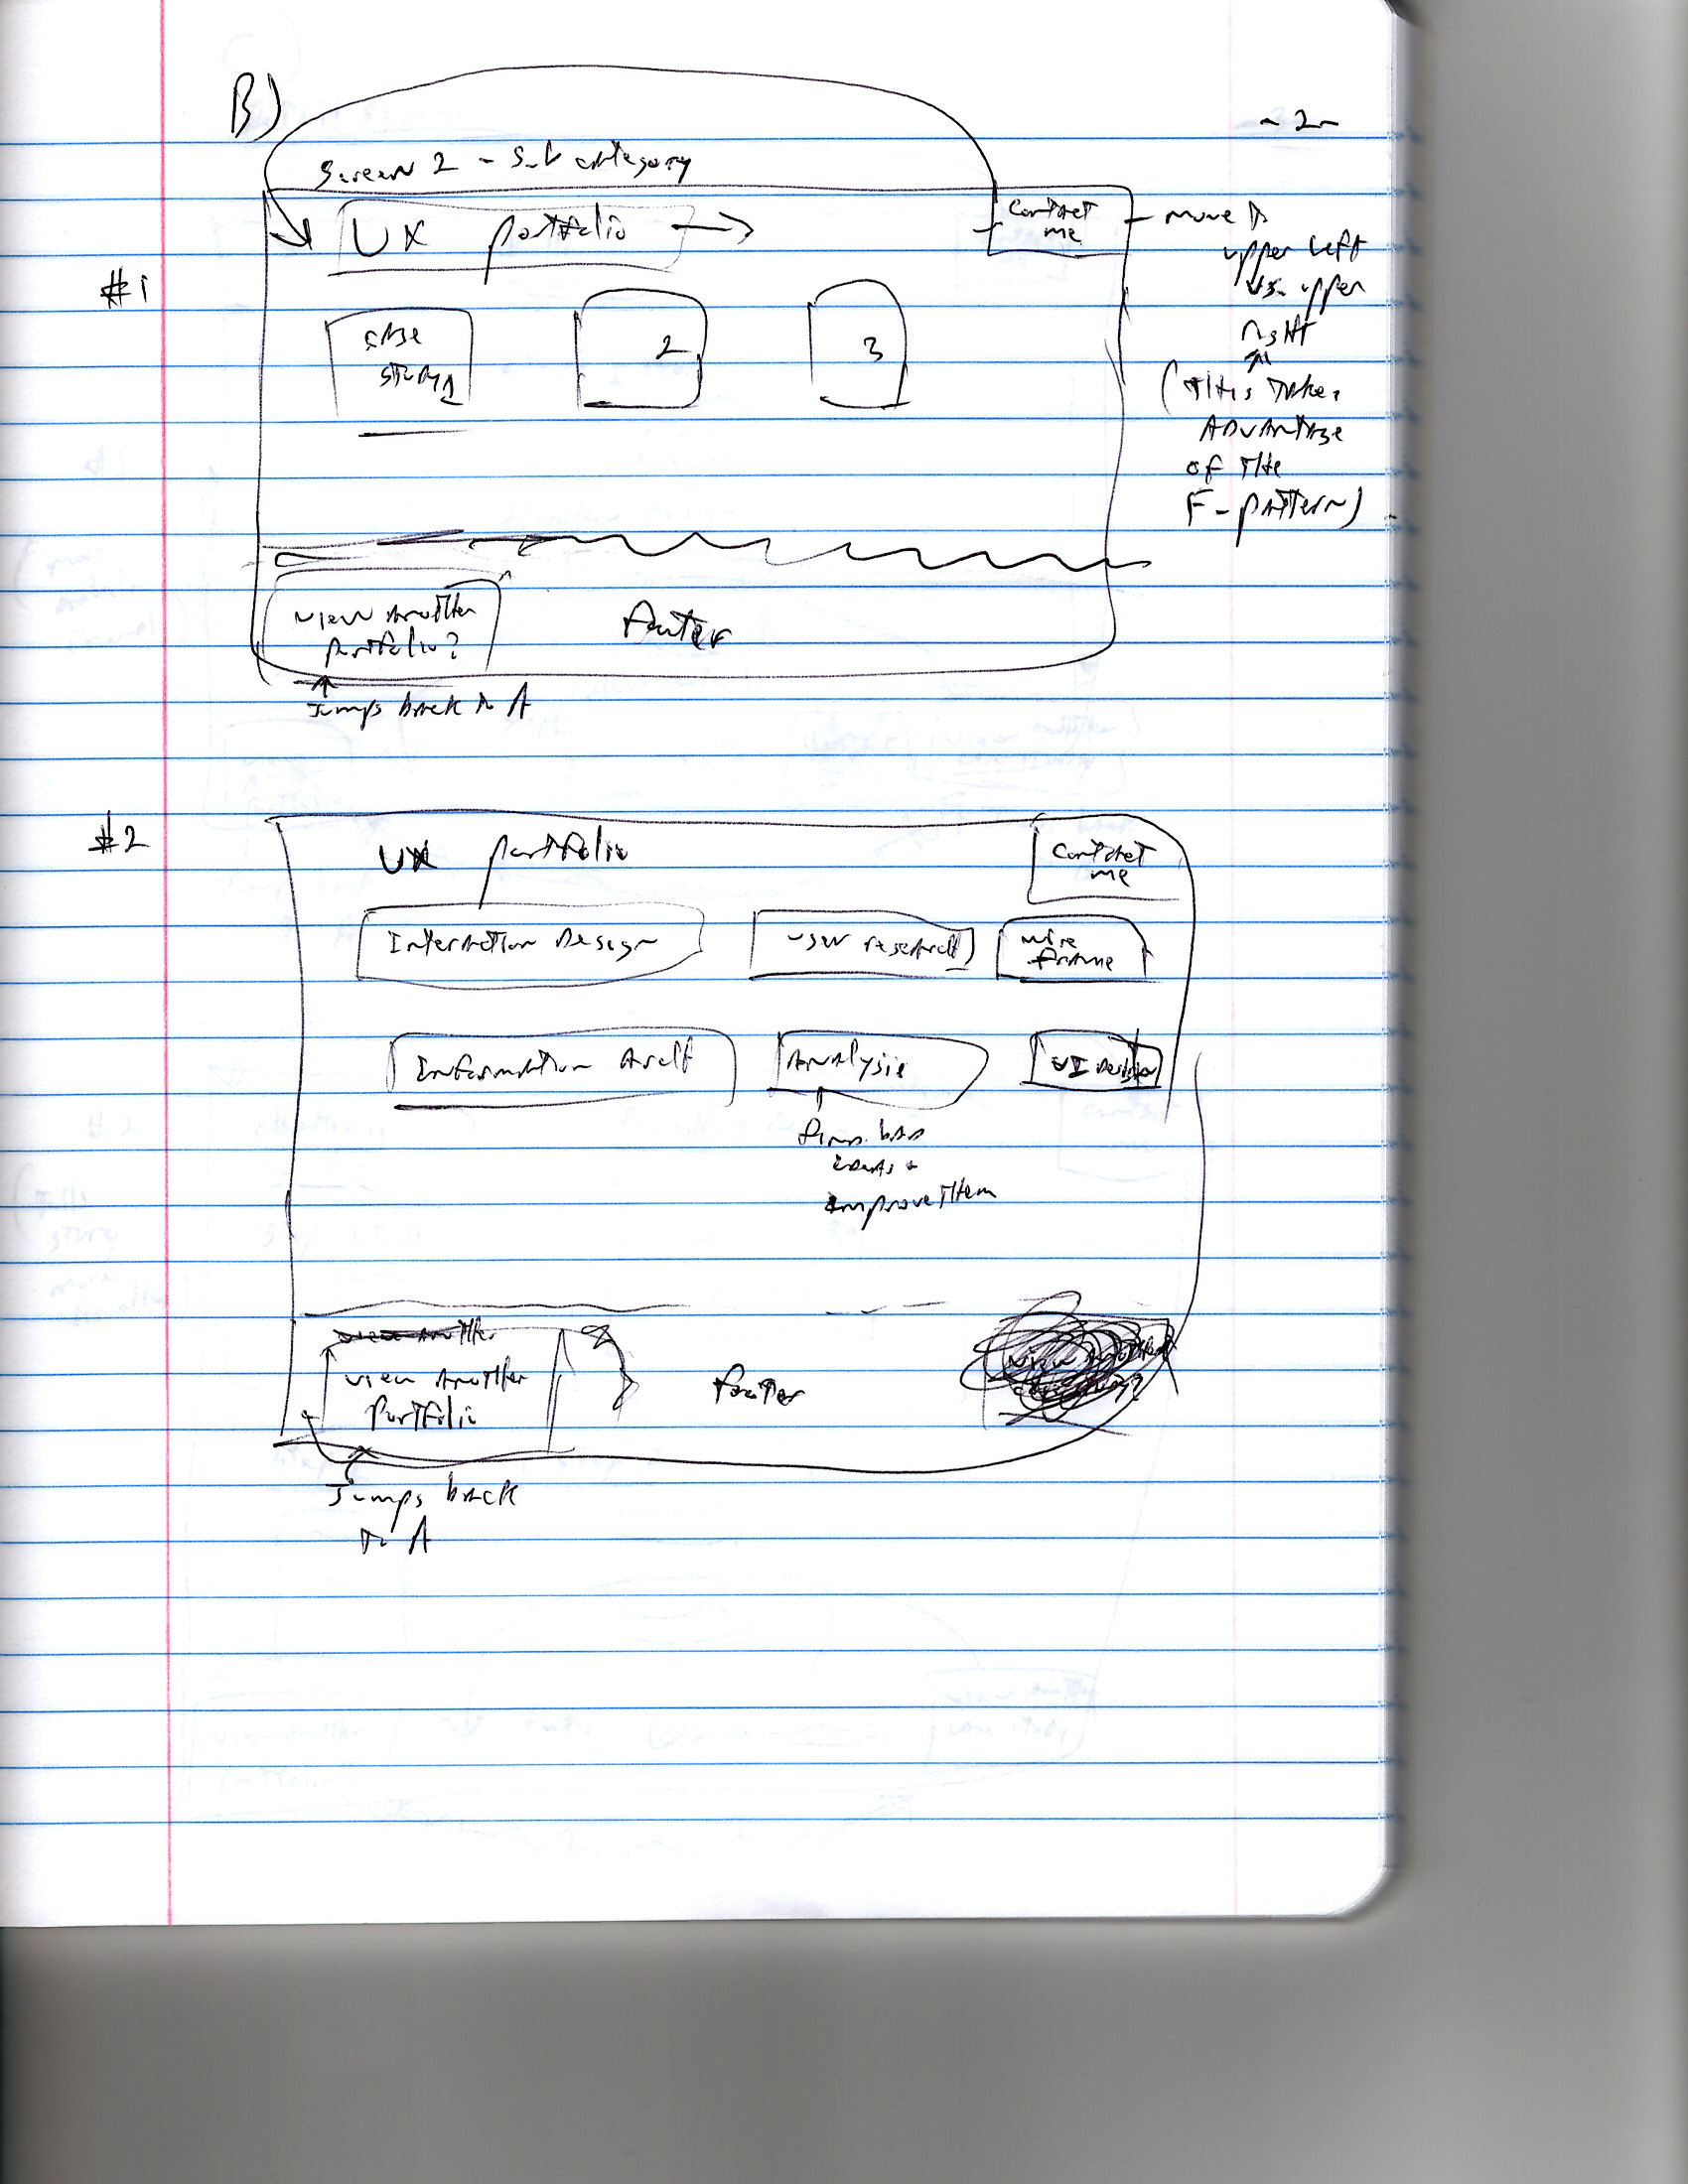 B)
- 2 -
Screen 2 - Sub category
UX portfolio →
Contact
me
move to
upper left
vs. upper
right
(this takes
advantage
of the
F-pattern)
#1
case
study 1
2
3
view another
portfolio?
footer
Jumps back to A
#2
UX portfolio
Contact
me
Interaction Design
user research
wire
frame
Information Arch
Analysis
UI Design
find bad
ideas +
improve them
view another
view another
portfolio
footer
view another
Jumps back
to A